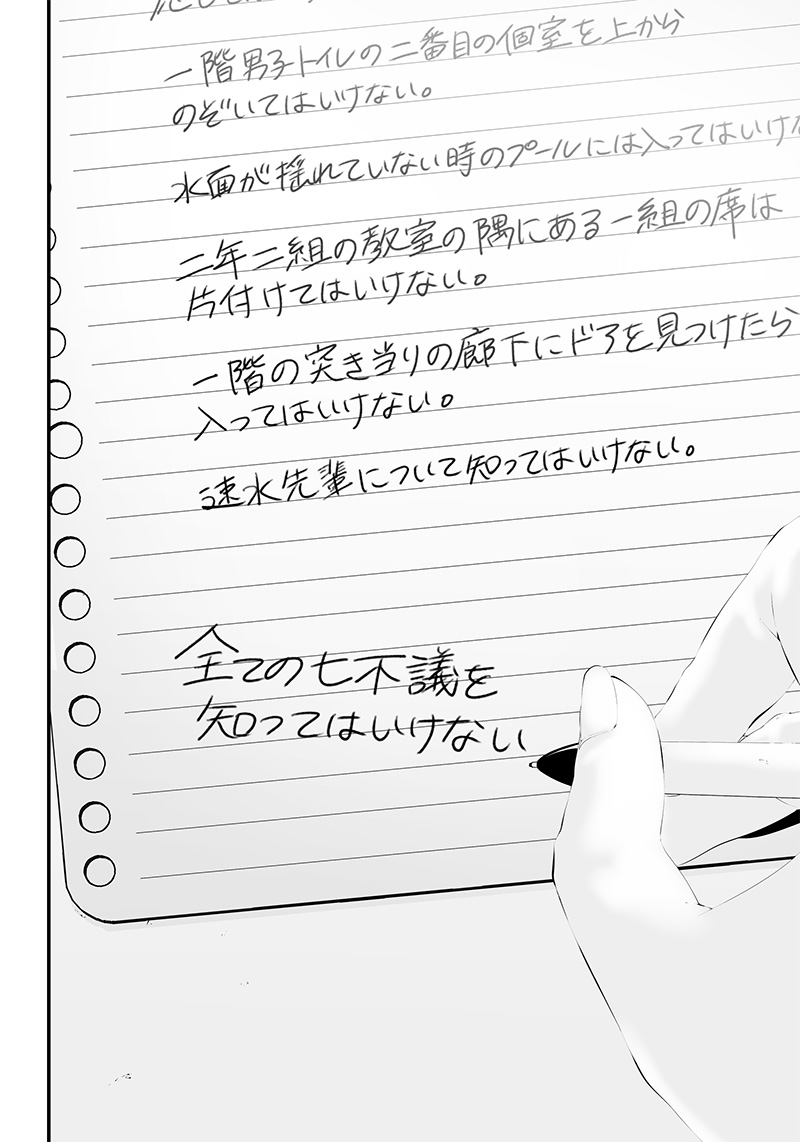 一階男子トイレの二番目の個室を上から
のぞいてはいけない。
水面が揺れていない時のプールには入ってはいけな
二年二組の教室の隅にある一組の席は
片付けてはいけない。
一階の突き当りの廊下にドアを見つけたら
入ってはいけない。
速水先輩について知ってはいけない。
全ての七不議を
知ってはいけない